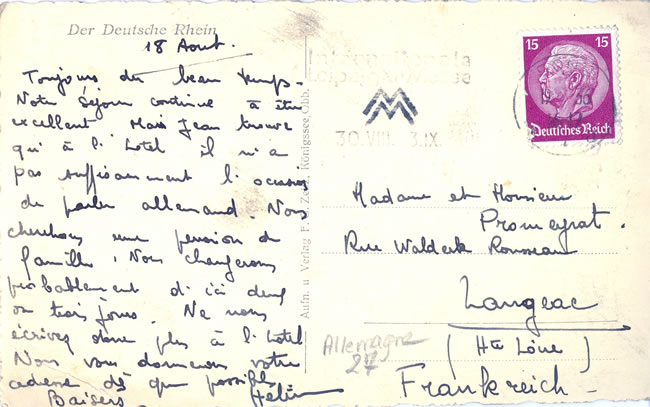 Der Deutsche Rhein
18 Aout.
Toujours du beau temps.
Notre séjour continue à être
excellent Mais Jean trouve
qu'à l'hotel il n'a
pas suffisamment l'occasion
de parler allemand. Nous
cherchons une pension de
famille. Nous changerons
probablement d'ici deux
ou trois jours. Ne nous
écrivez donc plus à l'hotel
Nous vous donnerons votre
adresse dès que possible
Baisers
Aufn. u. Verlag F. G. Zeitz, Königssee, Obb.
Leipziger Messe
30. VIII. 3. IX.
15 15
Deutsches Reich
Madame et Monsieur
Promeyrat.
Rue Waldeck Rousseau
Langeac
(Hte Loire)
Frankreich
Allemagne
27